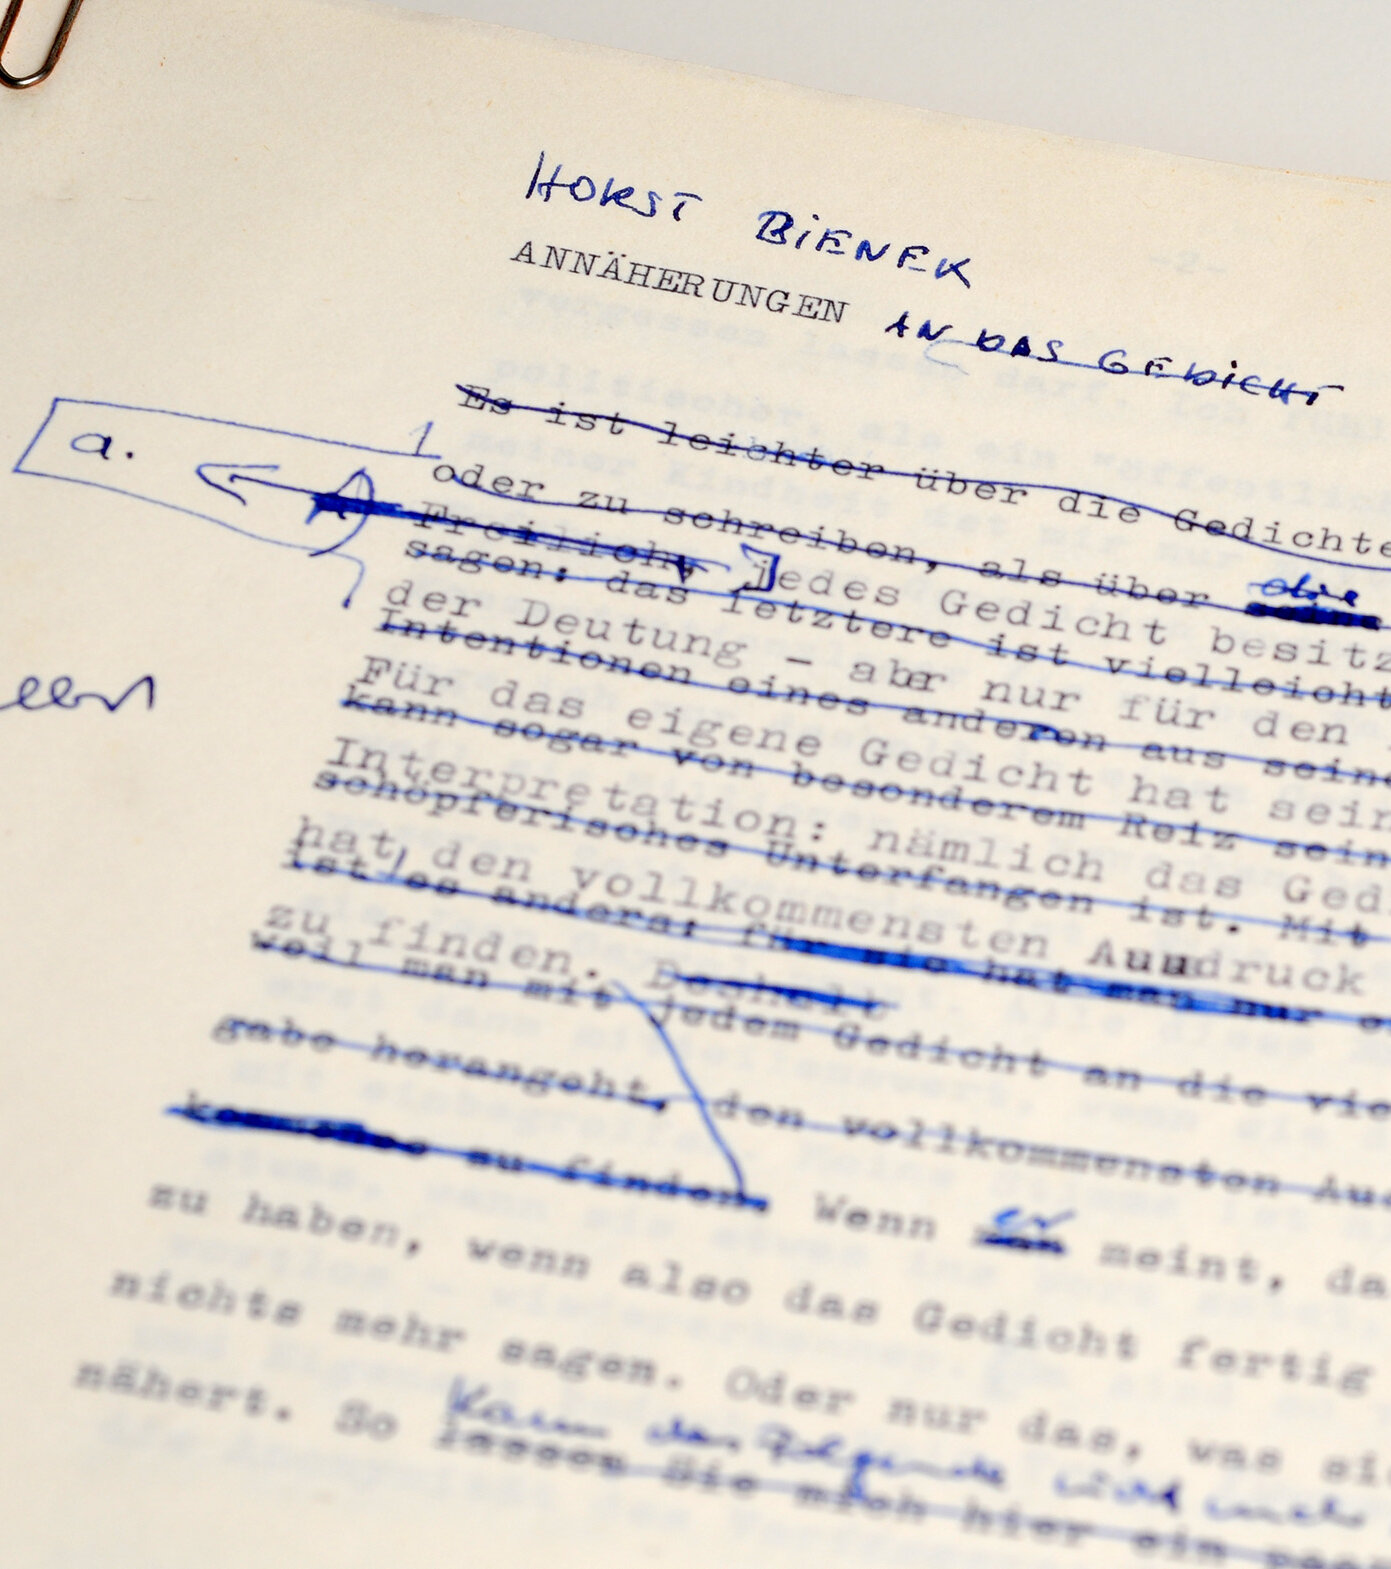 HORST BIENEK
ANNÄHERUNGEN AN DAS GEDICHT
a.
1
Es ist leichter über die Gedichte
oder zu schreiben, als über die
Freilich, jedes Gedicht besitz
sagen: das letztere ist vielleicht
der Deutung - aber nur für den
Intentionen eines anderen aus seine
Für das eigene Gedicht hat sein
kann sogar von besonderem Reiz sein
Interpretation: nämlich das Ged
schöpferisches Unterfangen ist. Mit
hat den vollkommensten Ausdruck
ist es anders: für sie hat man nur
zu finden. Deshalb
weil man mit jedem Gedicht an die vie
gabe herangeht, den vollkommensten Aus
zu finden. Wenn er meint, da
zu haben, wenn also das Gedicht fertig
nichts mehr sagen. Oder nur das, was si
nähert. So kann das Folgende
lassen Sie mich hier ein paar